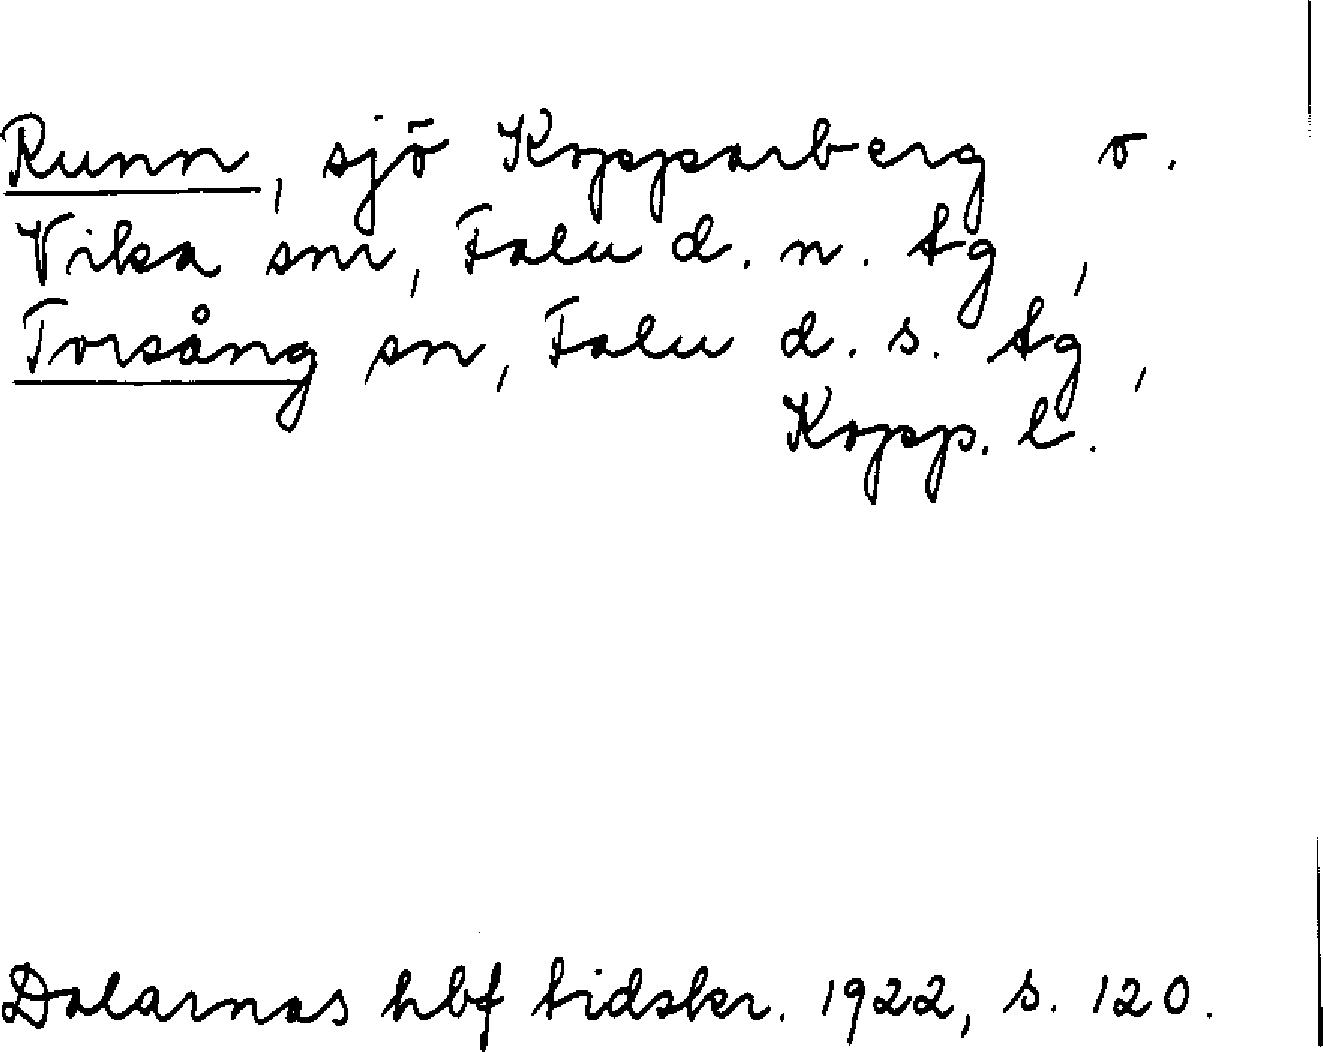 Runn, sjö Kopparberg o.
Vika snr, Falu d. n. tg,
Torsång sn, Falu d. s. tg,
Kopp. l.
Dalarnas hbf tidskr. 1922, s. 120.